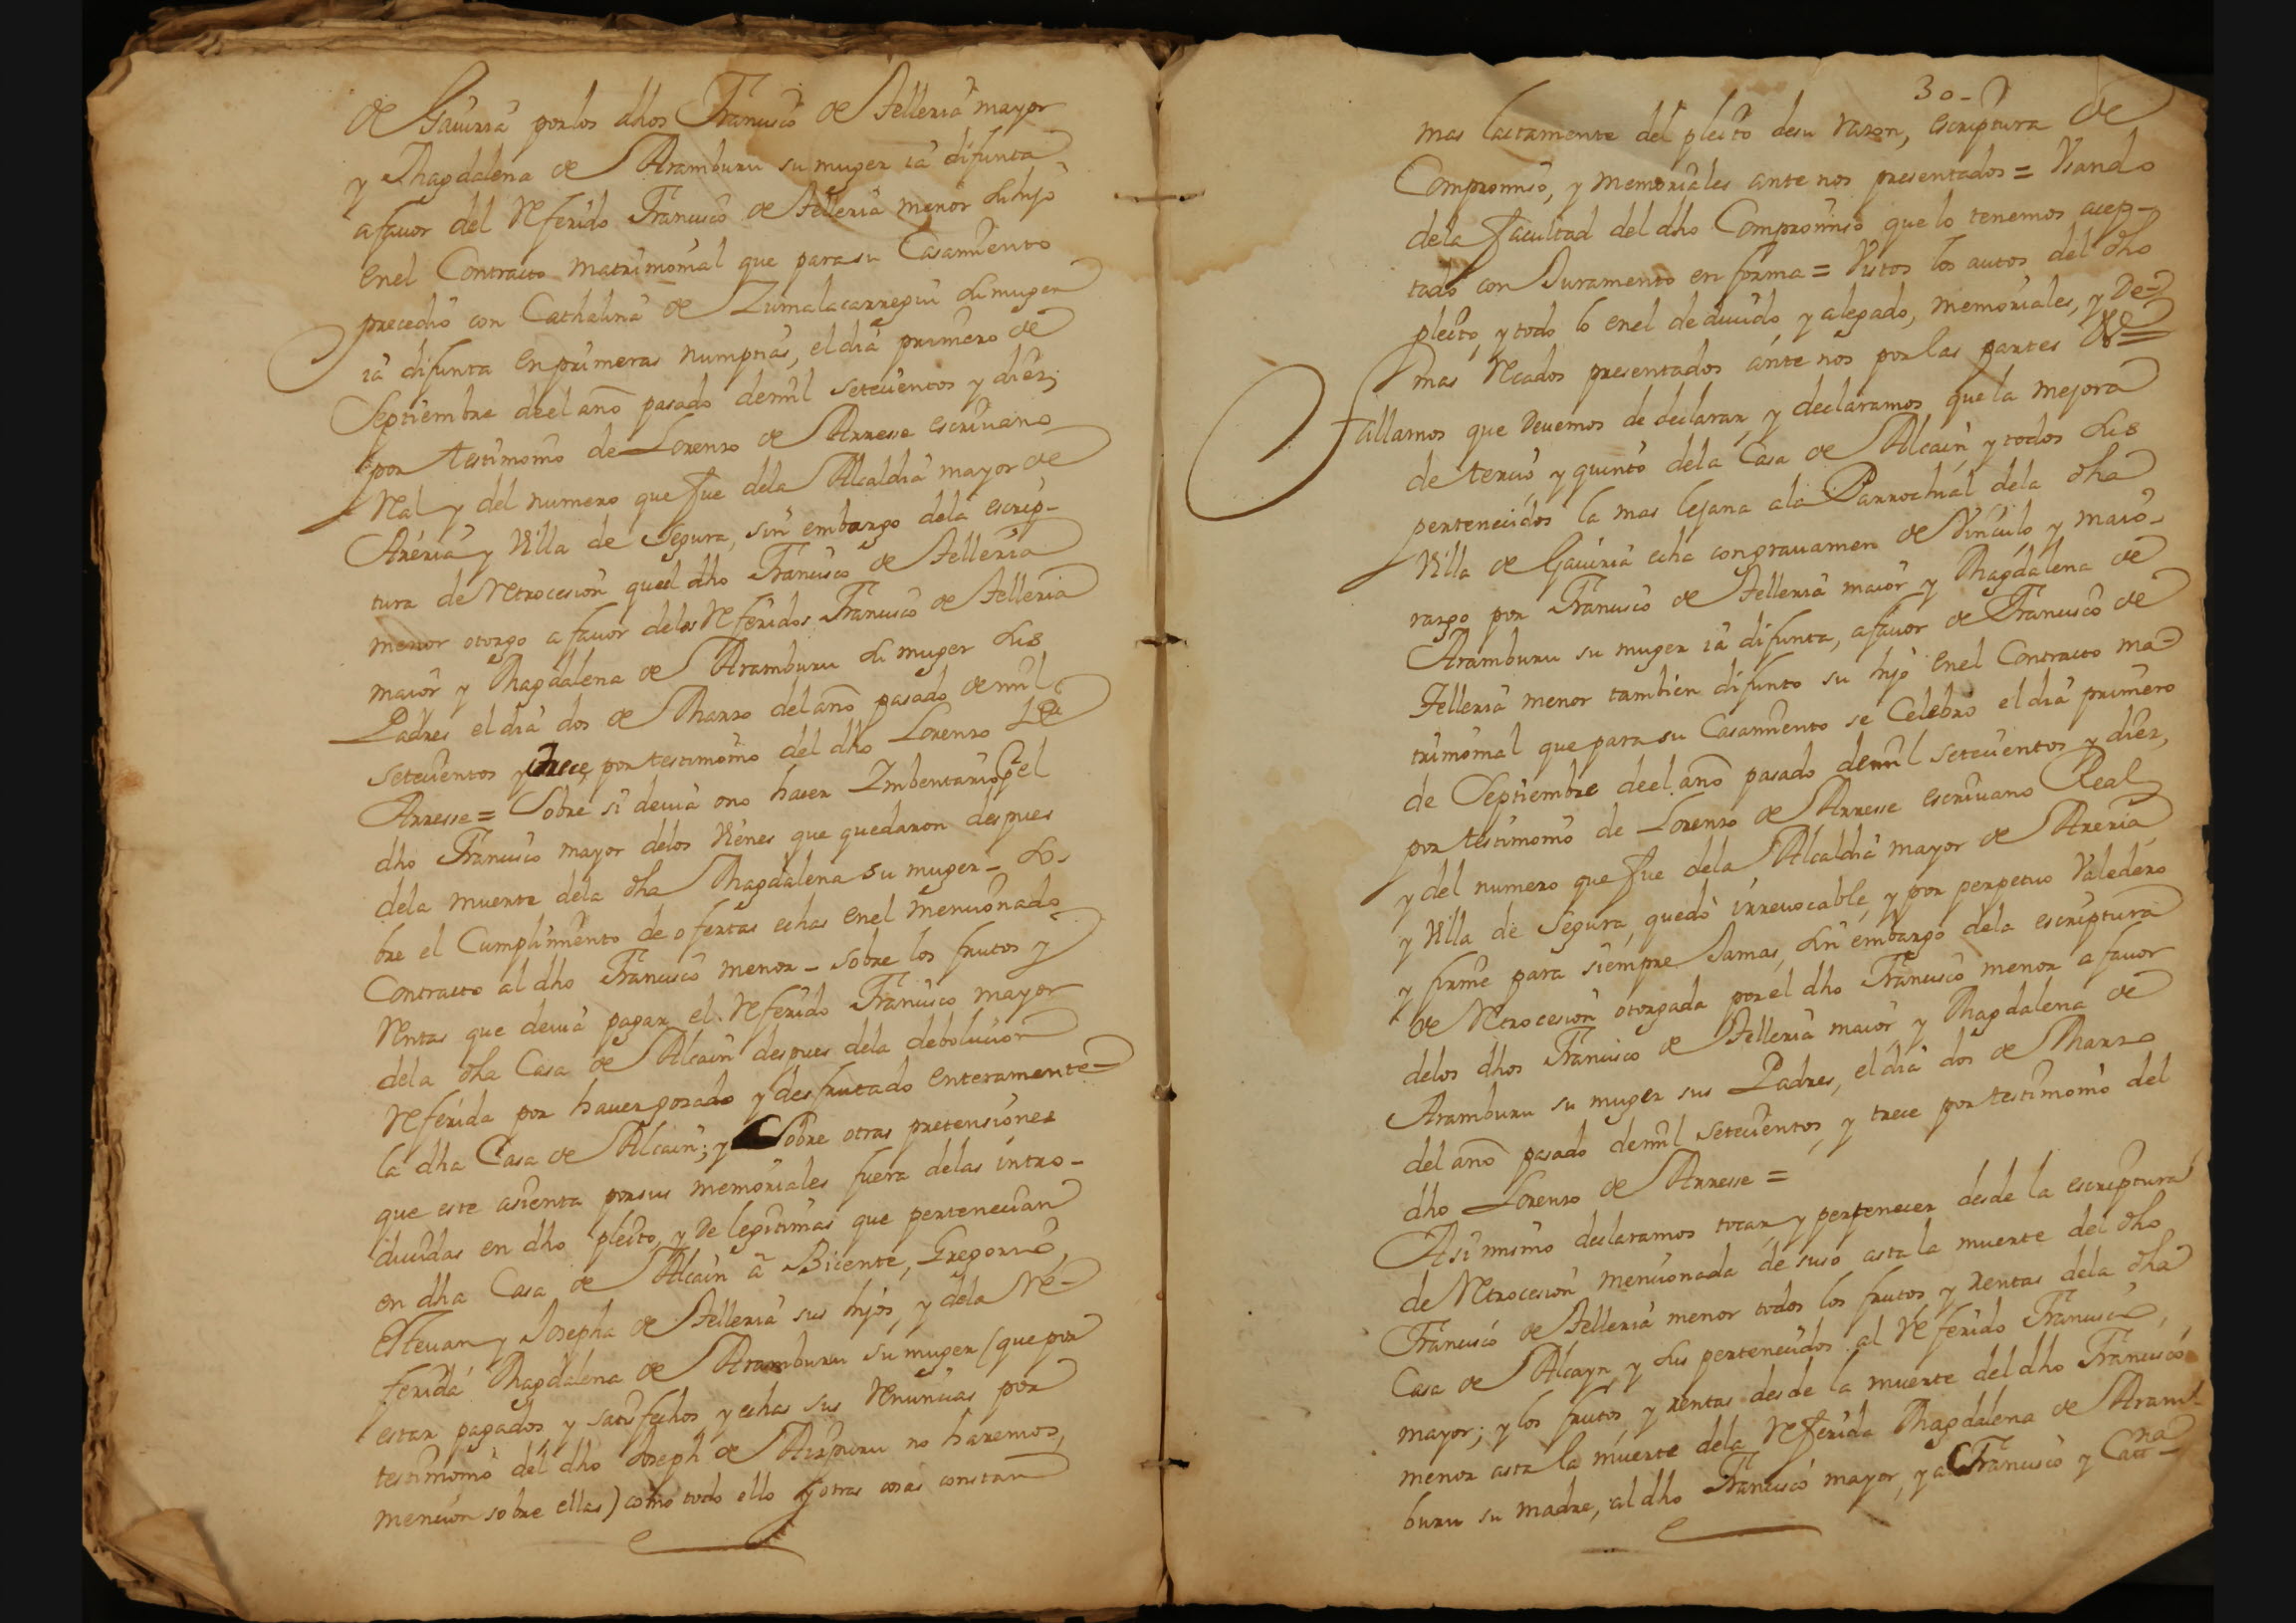 de Gauiria por los dhos Francisco de Telleria mayor
y Magdalena de Aramburu su muger ia difunta
a fauor del Referido Francisco de Telleria menor su hijo
enel Contracto matrimonial que para su Casamiento
precedio con Cathalina de Zumalacarregui su muger
ia difunta en primeras numptias, el dia primero de
Septiembre deel año pasado de mil setecientos y diez;
por testimonio de Lorenzo de Arrese escriuano
Real y del numero que fue dela Alcaldia mayor de
Areria y Villa de Segura, sin embargo dela escrip-
tura de Retrocesion queel dho Francisco de Telleria
menor otorgo a fauor delos Referidos Francisco de Telleria
maior y Magdalena de Aramburu su muger sus
Padres el dia dos de Marzo del año pasado de mil
setecientos y trece, por testimonio del dho Lorenzo de
Arresse = Sobre si deuia o no hacer Imbentario el
dho Francisco mayor delos Vienes que quedaron despues
dela muerte dela dha Magdalena su muger - So-
bre el Cumplimiento de ofertas echas enel mencionado
Contracto al dho Francisco menor - sobre los frutos y
Rentas que deuia pagar el Referido Francisco mayor
dela dha Casa de Alcain despues dela debolucion
Referida por hauer gozado y desfrutado enteramente
la dha Casa de Alcain; y Sobre otras pretensiones
que este asienta por sus memoriales fuera delas intro-
ducidas en dho pleito, y de legitimas que pertenecian
en dha Casa de Alcain a Bicente, Gregorio,
Esteuan y Josepha de Telleria sus hijos, y dela Re-
ferida Magdalena de Aramburu su muger (que por
estar pagados y satisfechos y echas sus Renuncias por
testimonio del dho Joseph de no haremos
mencion sobre ellas) como todo ello y otras cosas constan
30-
mas lactamente del pleito desu razon, escriptura de
Compromiso, y memoriales ante nos presentados = Vsando
dela facultad del dho Compromiso que lo tenemos acep-
tado con Juramento en forma = Vistos los autos del dho
pleito, y todo lo enel deducido y alegado, memoriales, y De-
mas Recados presentados ante nos por las partes &ª =
Fallamos que Deuemos de declarar, y declaramos que la mejora
de tercio, y quinto dela Casa de Alcain, y todos sus
pertenecidos la mas lejana ala Parrochial dela dha
Villa de Gauiria echa con grauamen de Vinculo y maio-
razgo por Francisco de Telleria maior, y Magdalena de
Aramburu su muger ia difunta, a fauor de Francisco de
Telleria menor tambien difunto su hijo enel Contracto ma-
trimonial que para su Casamiento se Celebro el dia primero
de Septiembre deel año pasado de mil setecientos y diez,
por testimonio de Lorenzo de Arresse escriuano Real
y del numero que fue dela Alcaldia mayor de Areria
y Villa de Segura, quedo irreuocable, y por perpetuo Valedero
y firme para siempre Jamas, sin embargo dela escriptura
de Retrocesion otorgada por el dho Francisco menor a fauor
delos dhos Francisco de Telleria maior y Magdalena de
Aramburu su muger sus Padres, el dia dos de Marzo
del año pasado de mil setecientos, y trece por testimonio del
dho Lorenzo de Arresse =
Asi mismo declaramos tocar, y pertenecer desde la escriptura
de Retrocesion mencionada de suso asta la muerte del dho
Francisco de Telleria menor todos los frutos y rentas dela dha
Casa de Alcayn, y sus pertenecidos al Referido Francisco
mayor; y los frutos, y rentas desde la muerte del dho Francisco
menor asta la muerte dela Referida Magdalena de Aram-
buru su madre, al dho Francisco mayor, y a Francisco y Catt.na